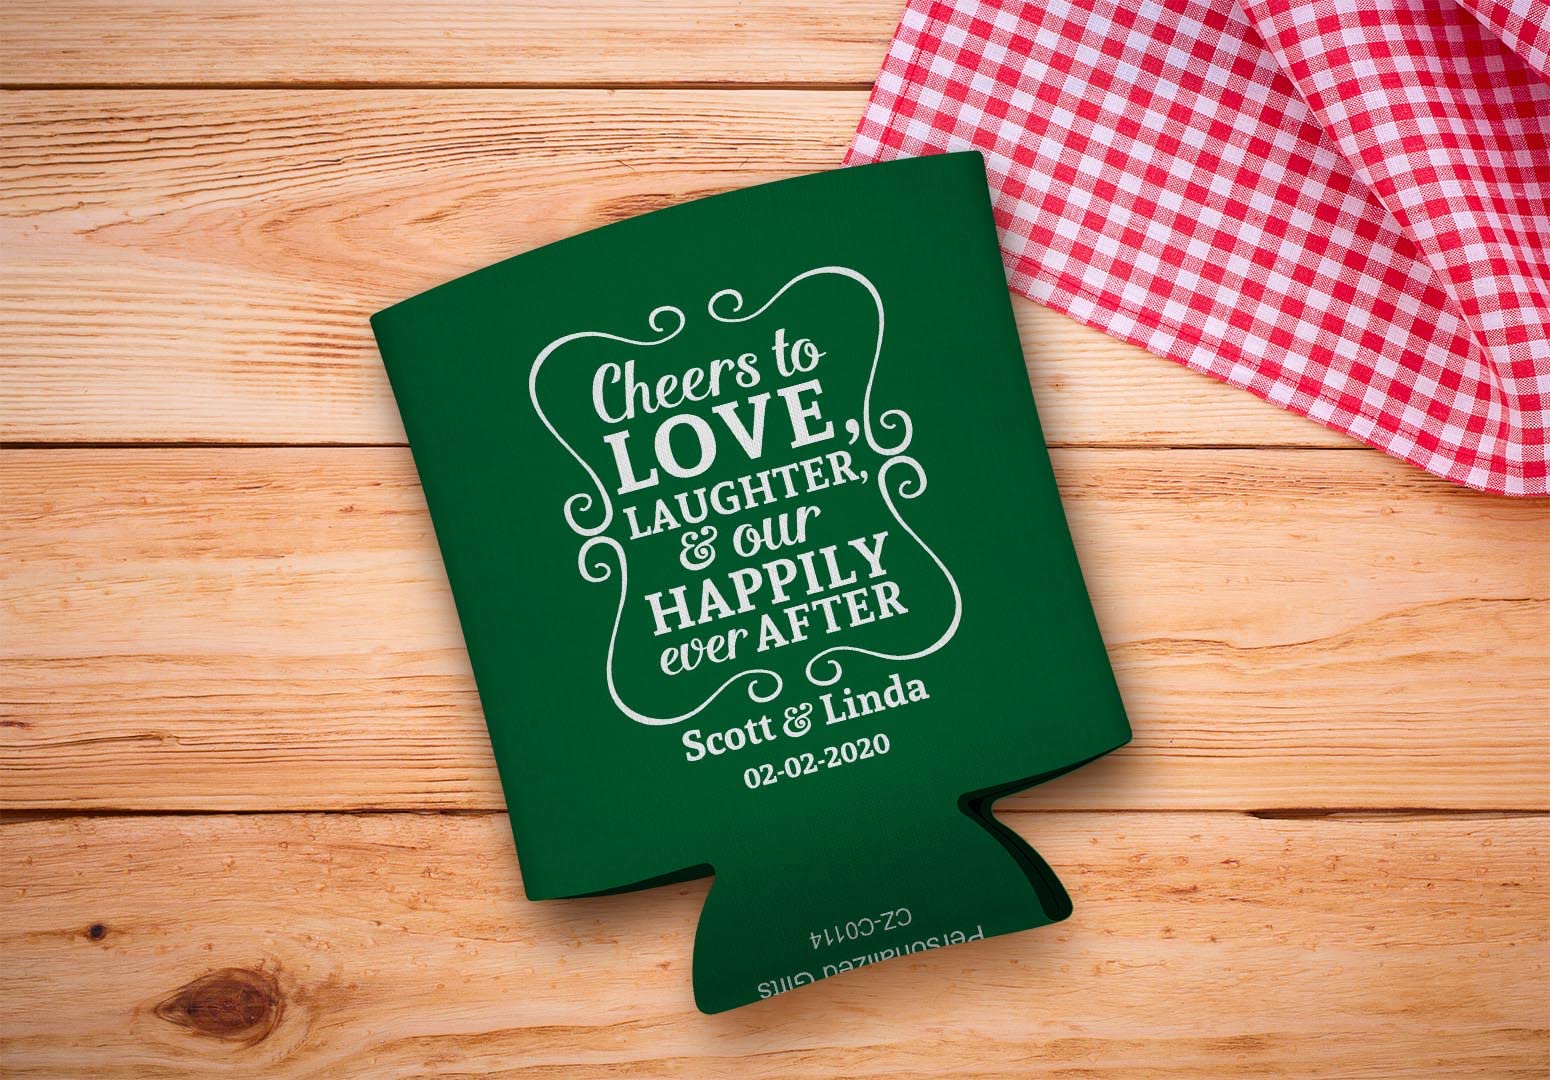 Cheers to
LOVE,
LAUGHTER,
& our
HAPPILY
ever AFTER
Scott & Linda
02-02-2020
CZ-C0114
Personalized Gifts